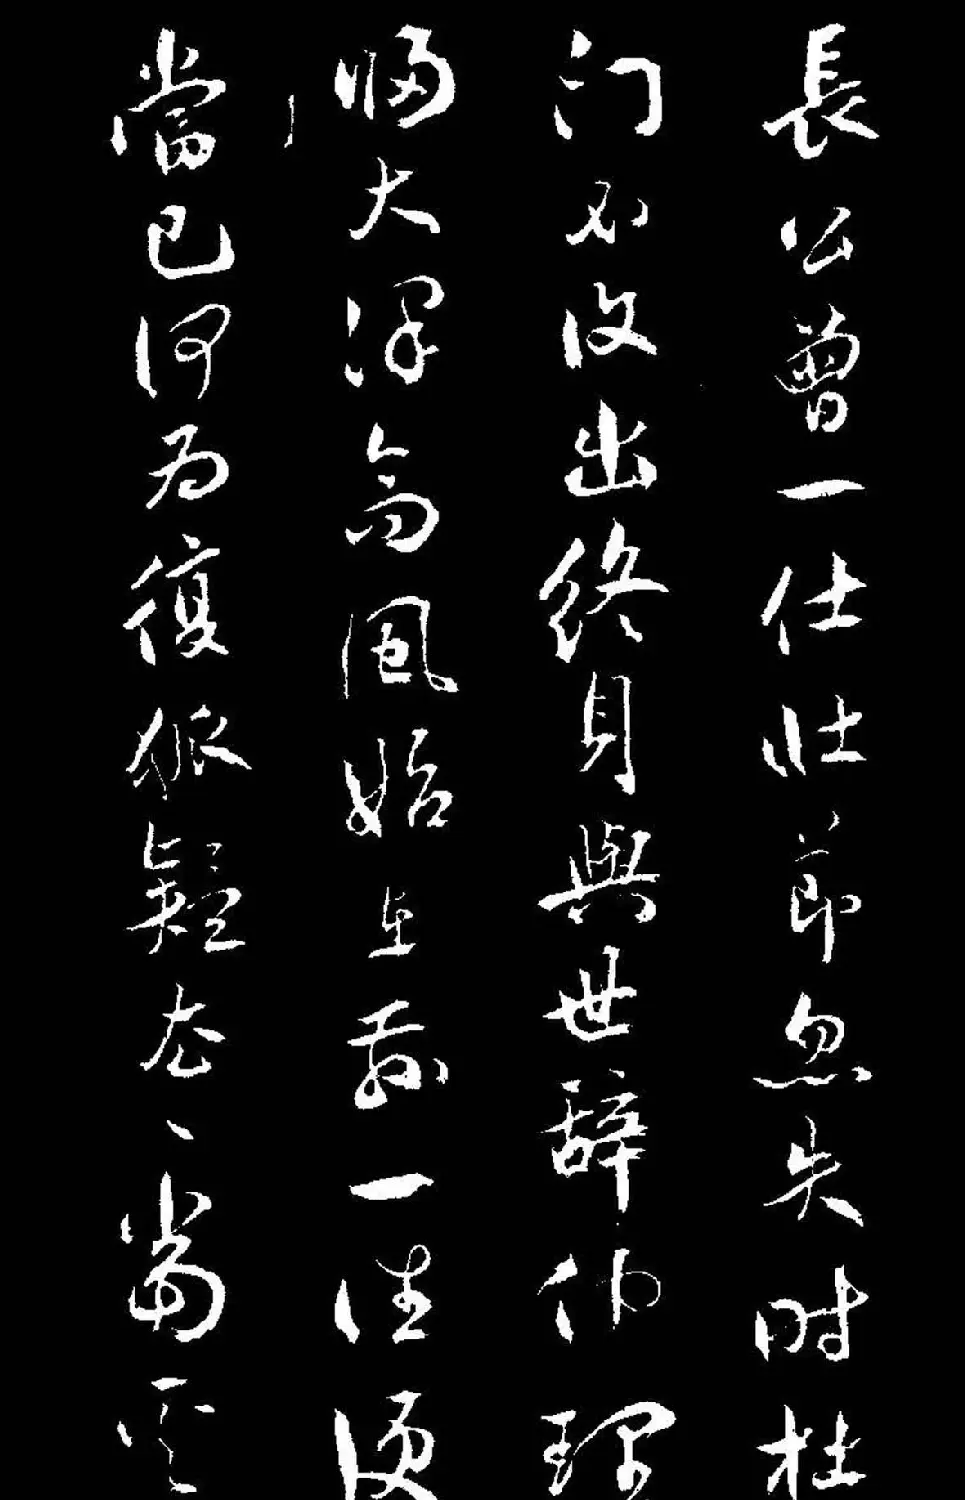 長公曾一仕壯節忽失时杜
门不復出終身與世辭仲理
歸大澤高風始在茲一往便
當已何為復狐疑去去當奚